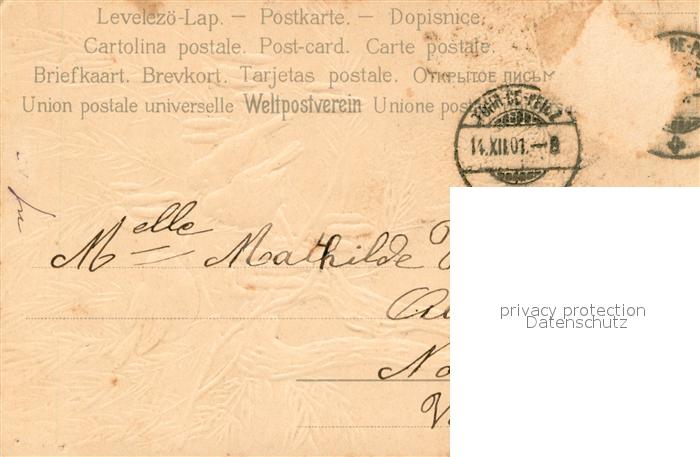 Levelezö-Lap. — Postkarte. — Dopisnice.
Cartolina postale. Post-card. Carte postale.
Briefkaart. Brevkort. Tarjetas postale. Открытое письм
Union postale universelle Weltpostverein Unione post
TOUR-DE-PEILZ
14.XII.01.—8
DE-P
Melle Mathilde
No
V
privacy protection
Datenschutz